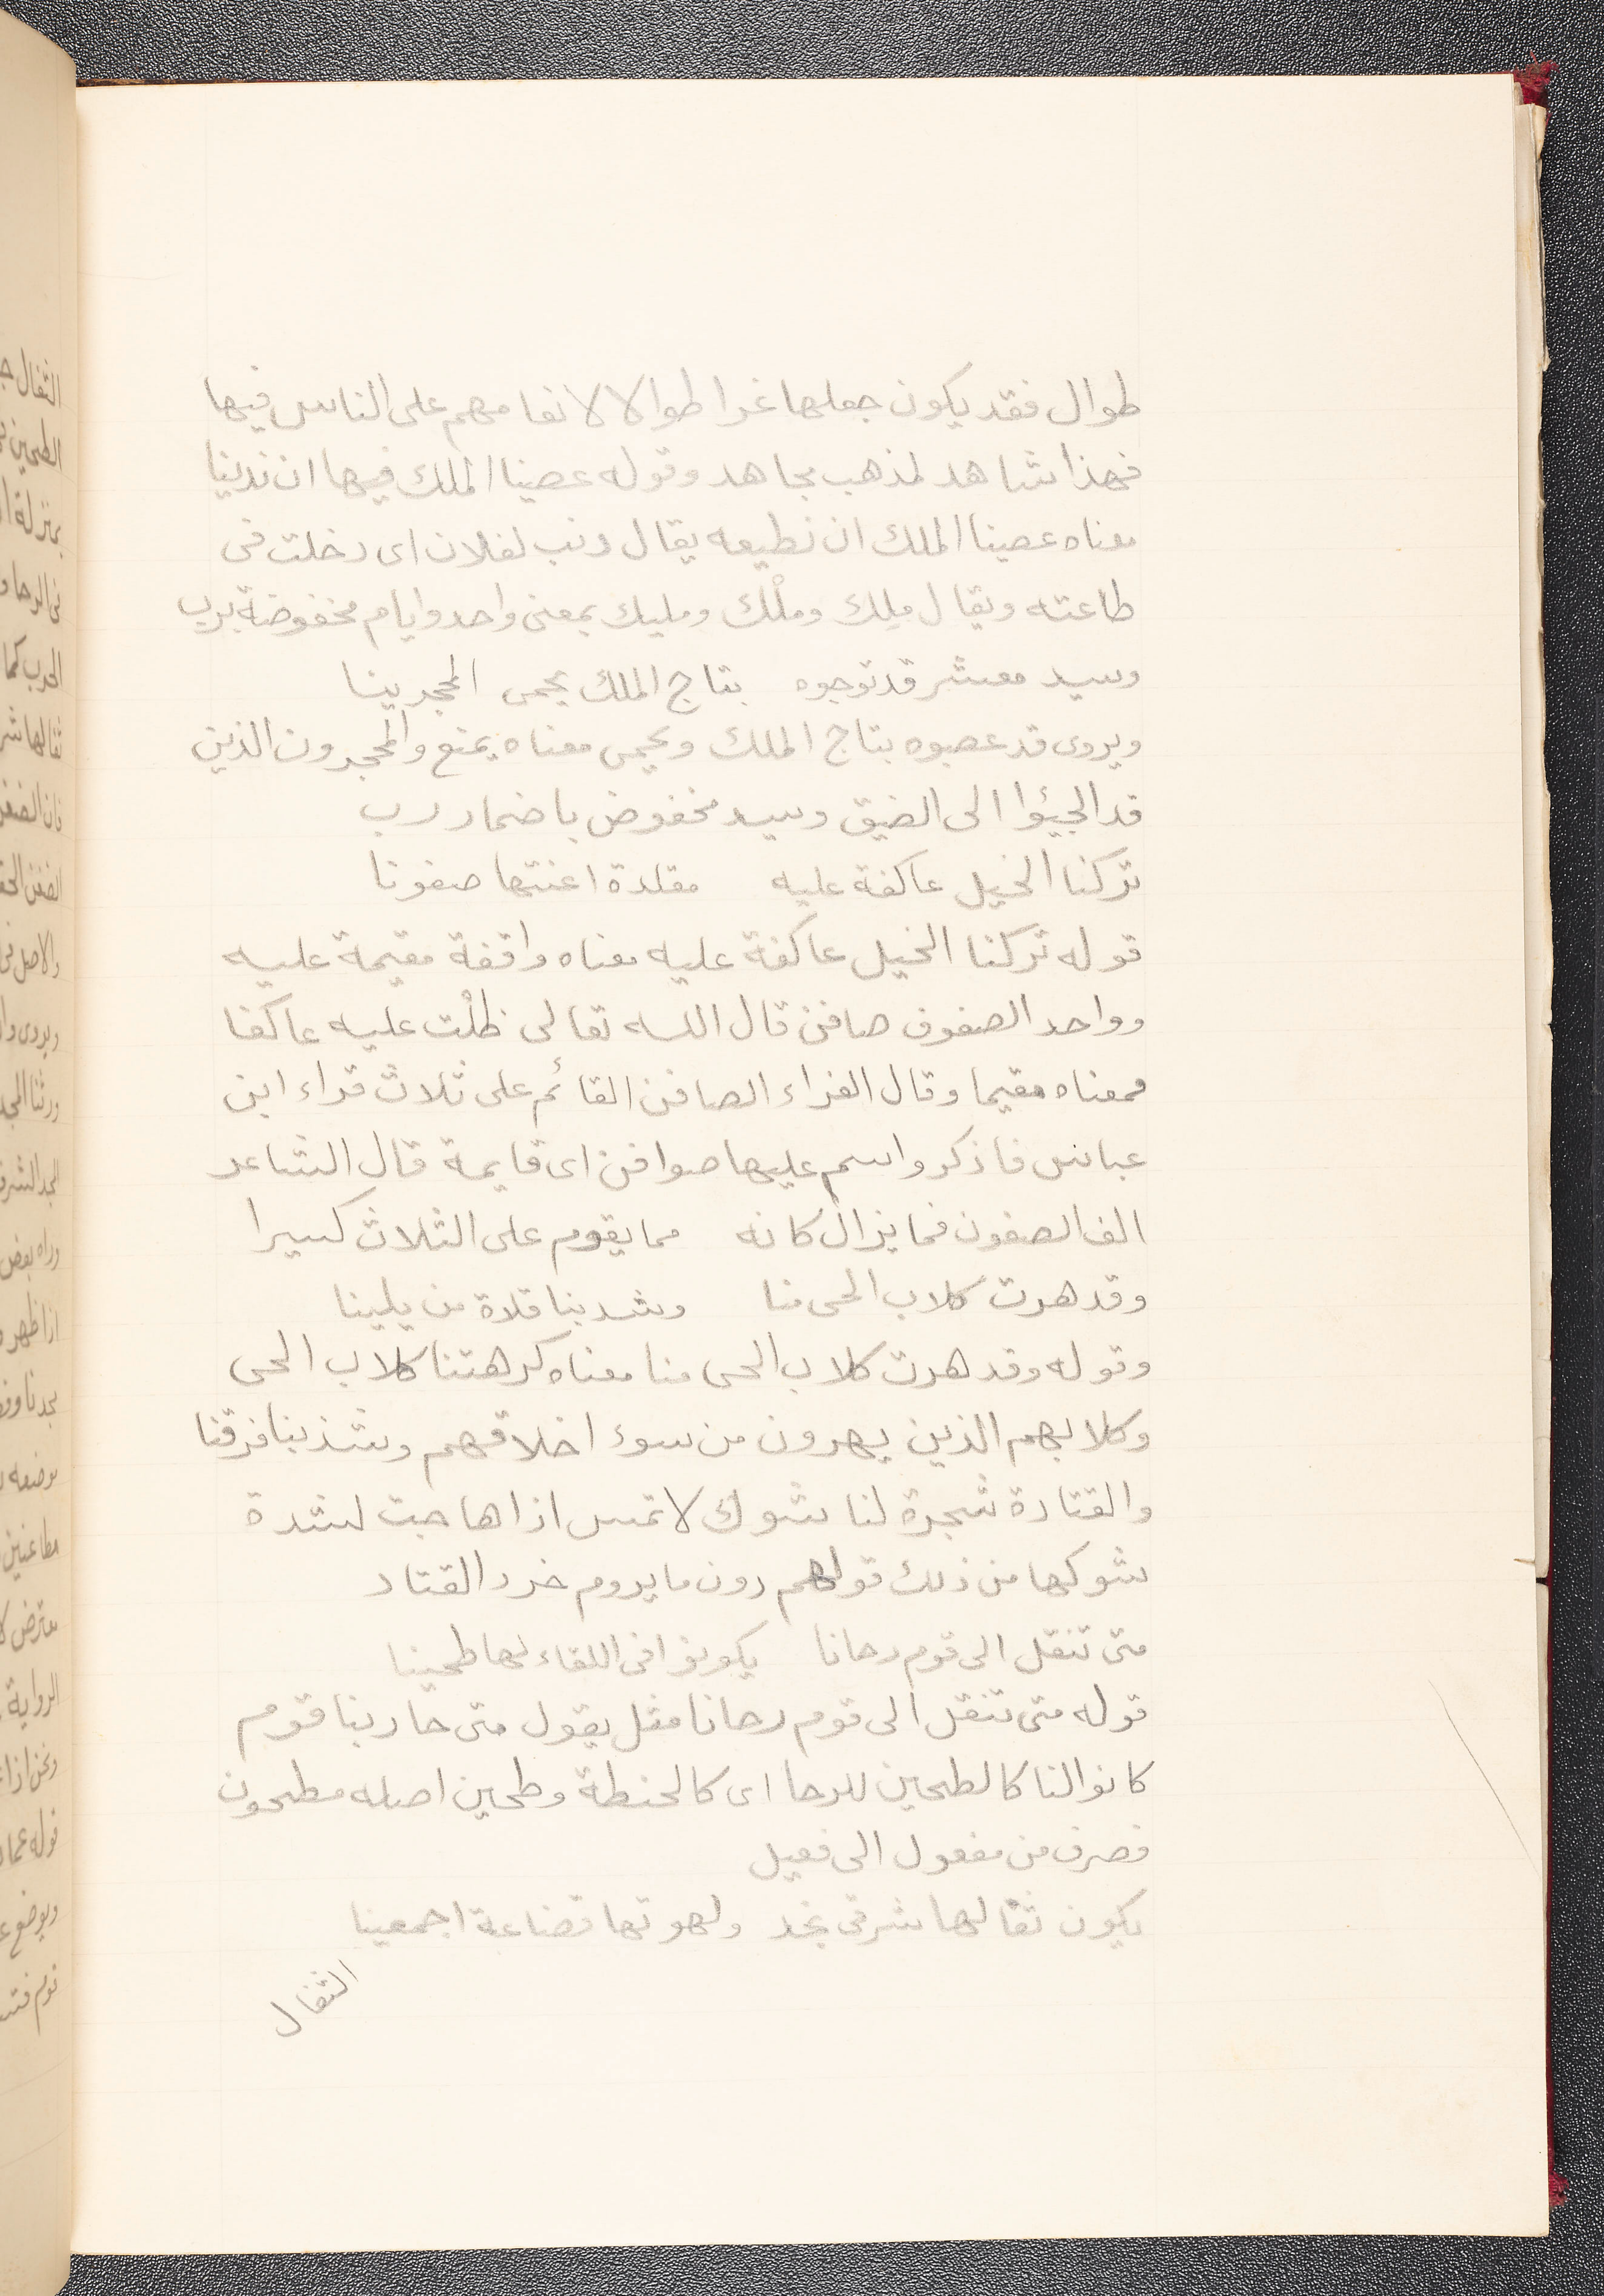 طوال فقد يكون جعلها غرا طوالا لانعامهم على الناس فيها
فهذا شاهد لمذهب مجاهد وقوله عصينا الملك فيها ان ندينا
معناه عصينا الملك ان نطيعه يقال دنت لفلان اى دخلت فى
طاعته ويقال ملك وملْك ومليك بمعنى واحد وايام مخفوضة برب
وسيد معشر قد توجوه بتاج الملك يحمى المحجرينا
ويروى قد عصبوه بتاج الملك ويحمى معناه يمنع والمحجرون الذين
قد الجيئوا الى الضيق وسيد مخفوض باضمار رب
تركنا الخيل عاكفة عليه مقلدة اعنتها صفونا
قوله تركنا الخيل عاكفة عليه معناه واقفة مقيمة عليه
وواحد الصفون صافن قال الله تعالى ظلْت عليه عاكفا
فمعناه مقيما وقال الفراء الصافن القائم على ثلاث قراء ابن
عباس فاذكروا اسم عليها صوافن اى قايمة قال الشاعر
الف الصفون فما يزال كانه مما يقوم على الثلاث كسيرا
وقد هرت كلاب الحى منا وشدبنا قلادة من يلينا
وقوله وقد هرت كلاب الحى منا معناه كرهتنا كلاب الحى
وكلابهم الذين يهرون من سوء اخلاقهم وشذبنا فرقنا
والقتادة شجرة لنا شوك لا تمس اذا هاجت لشدة
شوكها من ذلك قولهم دون ما يروم خرد القتاد
متى تنقل الى قوم رحانا يكونوا فى اللقاء لها طحينا
قوله متى تنقل الى قوم رحانا مثل يقول متى حاربنا قوم
كانوا لنا كالطحين للرحا اى كالحنطة وطحين اصله مطحون
فصرف من مفعول الى فعيل
يكون ثفالها شرقى نجد ولهوتها قضاعة اجمعينا
الثفال